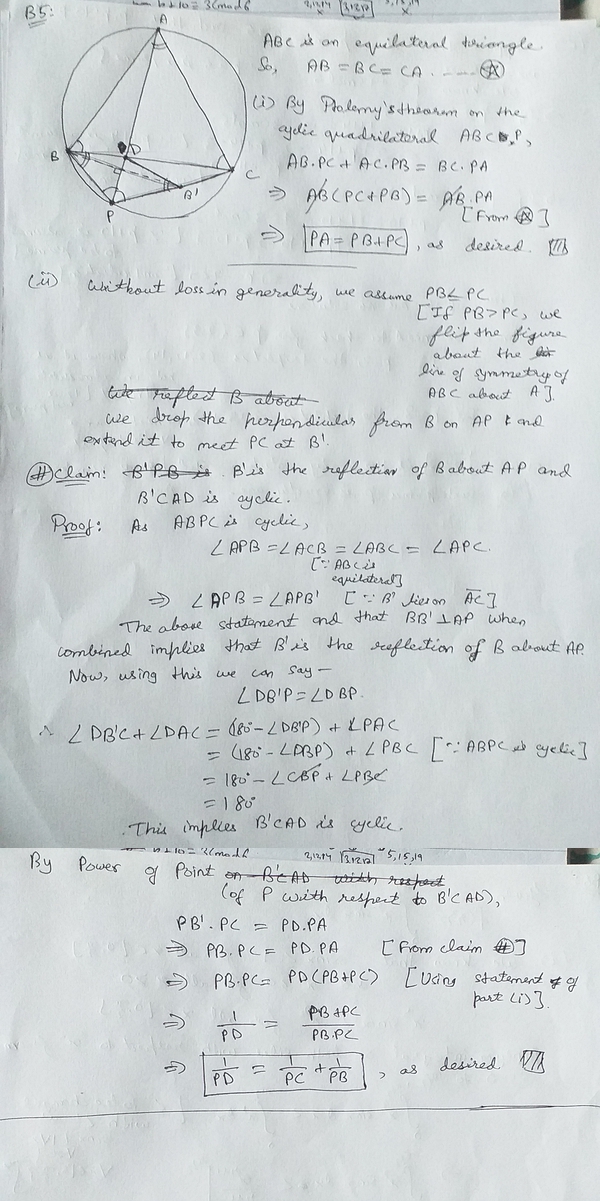 n+10 = 3(mod 6
3,12,14 3,12,12 5,15,19
B5:
A
B
D
C
B'
P
ABC is an equilateral triangle.
So, AB = BC = CA. ---- Ⓐ
(i) By Ptolemy's theorem on the
cyclic quadrilateral ABCP,
AB.PC + AC.PB = BC.PA
⇒ AB(PC+PB) = AB.PA
[From Ⓐ]
⇒ PA = PB+PC, as desired.
(ii) Without loss in generality, we assume PB≤PC
[If PB>PC, we
flip the figure
about the
line of symmetry of
ABC about A].
We reflect B about
We drop the perpendicular from B on AP and
extend it to meet PC at B'.
# Claim: B'PB is B' is the reflection of B about AP and
B'CAD is cyclic.
Proof: As ABPC is cyclic,
∠APB = ∠ACB = ∠ABC = ∠APC.
[∵ ABC is
equilateral]
⇒ ∠APB = ∠APB' [∵ B' lies on AC]
The above statement and that BB' ⊥ AP when
combined implies that B' is the reflection of B about AP.
Now, using this we can say —
∠DB'P = ∠DBP.
∴ ∠DB'C + ∠DAC = (180° - ∠DB'P) + ∠PAC
= (180° - ∠DBP) + ∠PBC [∵ ABPC is cyclic]
= 180° - ∠CBP + ∠PBC
= 180°
This implies B'CAD is cyclic.
n+10 = 3(mod 6
3,12,14 3,12,12 5,15,19
By Power of Point on B'CAD with respect
(of P with respect to B'CAD),
PB'.PC = PD.PA
⇒ PB.PC = PD.PA [From claim #]
⇒ PB.PC = PD(PB+PC) [Using statement of
part (i)].
⇒ 1/PD = PB+PC/PB.PC
⇒ 1/PD = 1/PC + 1/PB, as desired